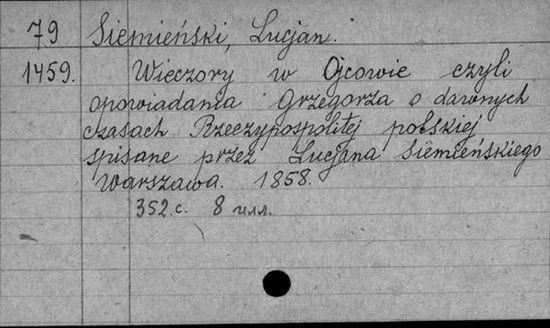 79 Siemieński, Lucjan.
1459. Wieczory w Ojcowie czyli
opowiadania Grzegorza o dawnych
czasach Rzeczypospolitej polskiej
spisane przez Lucjana Siemieńskiego
Warszawa. 1858.
352.с. 8 илл.